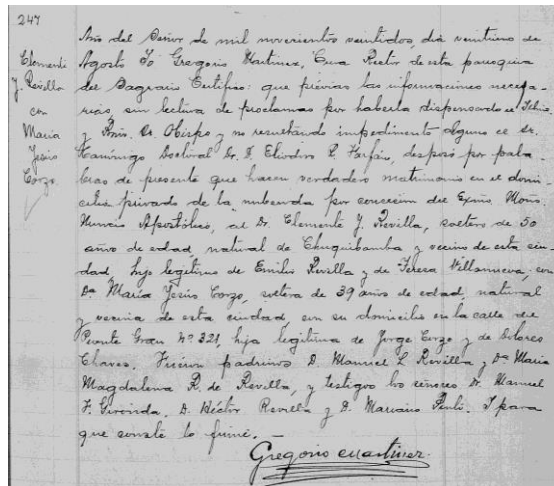 247
Clemente
J. Revilla
con
María
Jesús
Corzo
Año del Señor de mil novecientos veintidos, día veintiuno de
Agosto Yó Gregorio Martinez, Cura Rector de esta parroquia
del Sagrario Certifico: que previas las informaciones necesa-
rias, sin lectura de proclamas por haberla dispensado el Iltmo.
y Rvmo. Sr. Obispo y no resultando impedimento alguno el Sr.
Canónigo Doctoral Dr. D. Eliodoro L. Farfán, desposó por pala-
bras de presente que hacen verdadero matrimonio en el domi-
cilio privado de la nubenda por concesion del Exmo. Mons.
Nuncio Apostólico, al Dr. Clemente J. Revilla, soltero de 50
años de edad, natural de Chuquibamba y vecino de esta ciu-
dad, hijo legitimo de Emilio Revilla y de Teresa Villanueva, con
Da. María Jesús Corzo, soltera de 39 años de edad, natural
y vecina de esta ciudad, con su domicilio en la calle del
Puente Grau No. 321, hija legitima de Jorge Corzo y de Dolores
Chaves. Fueron padrinos D. Manuel E. Revilla y Da. María
Magdalena R. de Revilla, y testigos los señores Dr. Manuel
F. D. Héctor Revilla y D. Mariano Y para
que conste lo firmé.
Gregorio Martinez